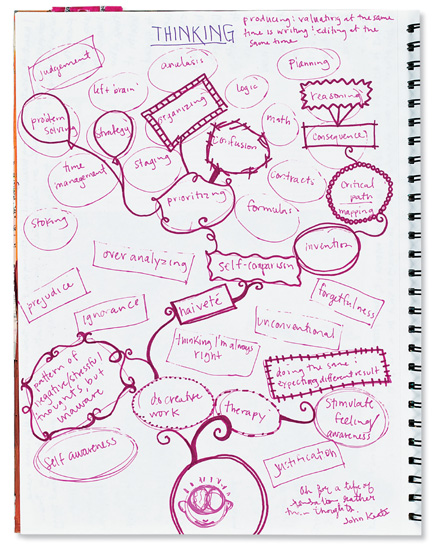 THINKING
producing & valuating at the same
time is writing & editing at the
same time
judgement
analasis
planning
left brain
organizing
logic
reasoning
problem
solving
strategy
math
confusion
consequence?
time
management
staging
prioritizing
contracts
critical
path
mapping
stoking
formulas
invention
over analyzing
self-comparisin
prejudice
ignorance
naiveté
forgetfulness
unconventional
thinking I'm always
right
pattern of
negative/stressful
thoughts but
unaware
doing the same &
expecting different result
do creative
work
therapy
stimulate
feeling/
awareness
self awareness
justification
Oh for a life of
sensation rather
than thoughts.
John Keats